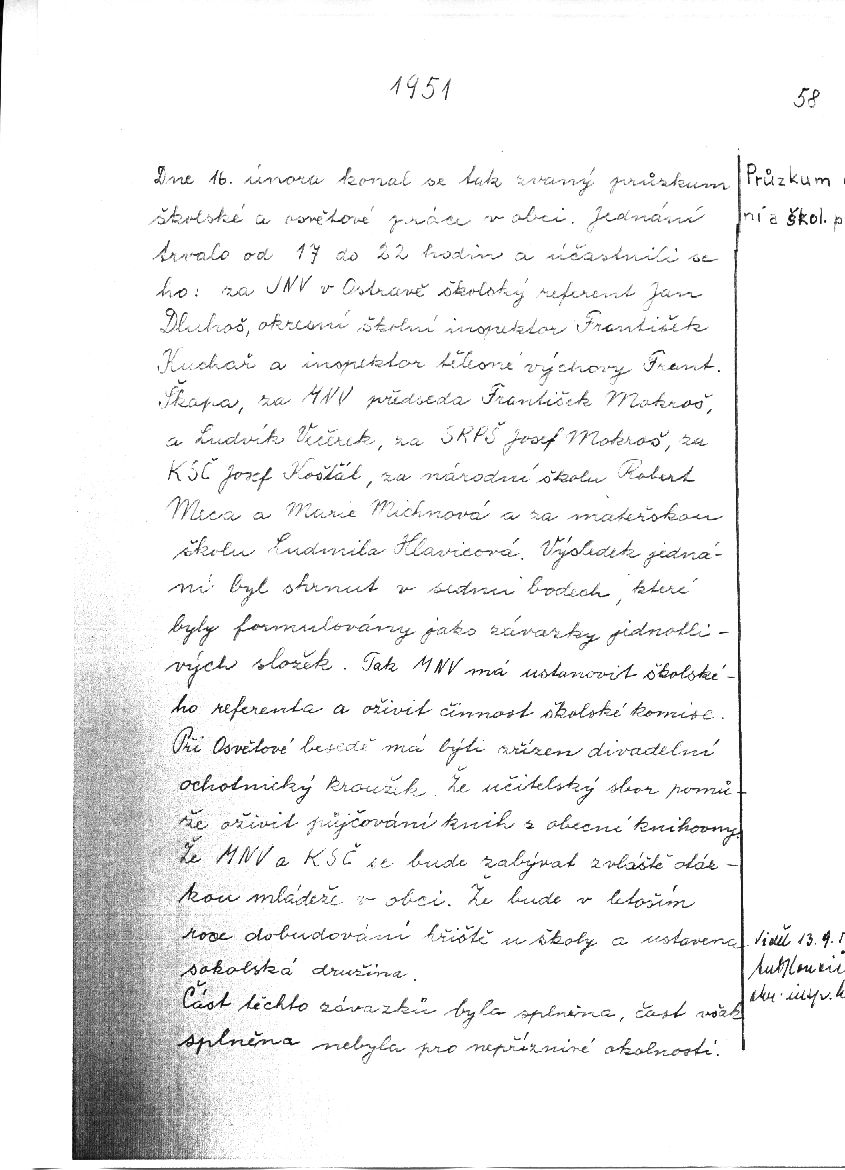 1951
58
Dne 16. února konal se tak zvaný průzkum
školské a osvětové práce v obci. Jednání
trvalo od 17 do 22 hodin a účastnili se
ho: za JNV v Ostravě školský referent Jan
Dluhoš, okresní školní inspektor František
Kuchař a inspektor tělesné výchovy Frant.
Škapa, za MNV předseda František Mokroš,
a Ludvík Věčrek, za SRPŠ Josef Mokroš, za
KSČ Josef Košťál, za národní školu Robert
Meca a Marie Michnová a za mateřskou
školu Ludmila Hlavicová. Výsledek jedná-
ní byl shrnut v sedmi bodech, které
byly formulovány jako závazky jednotli-
vých složek. Tak MNV má ustanovit školské-
ho referenta a oživit činnost školské komise.
Při Osvětové besedě má býti zřízen divadelní
ochotnický kroužek. Že učitelský sbor pomů-
že oživit půjčování knih z obecné knihovny.
Že MNV a KSČ se bude zabývat zvláště otáz-
kou mládeže v obci. Že bude v letoším
roce dobudování hřiště u školy a ustavena
sokolská družina.
Část těchto závazků byla splněna, část však
splněna nebyla pro nepříznivé okolnosti.
Průzkum
ní a škol. p
Viděl 13.9.